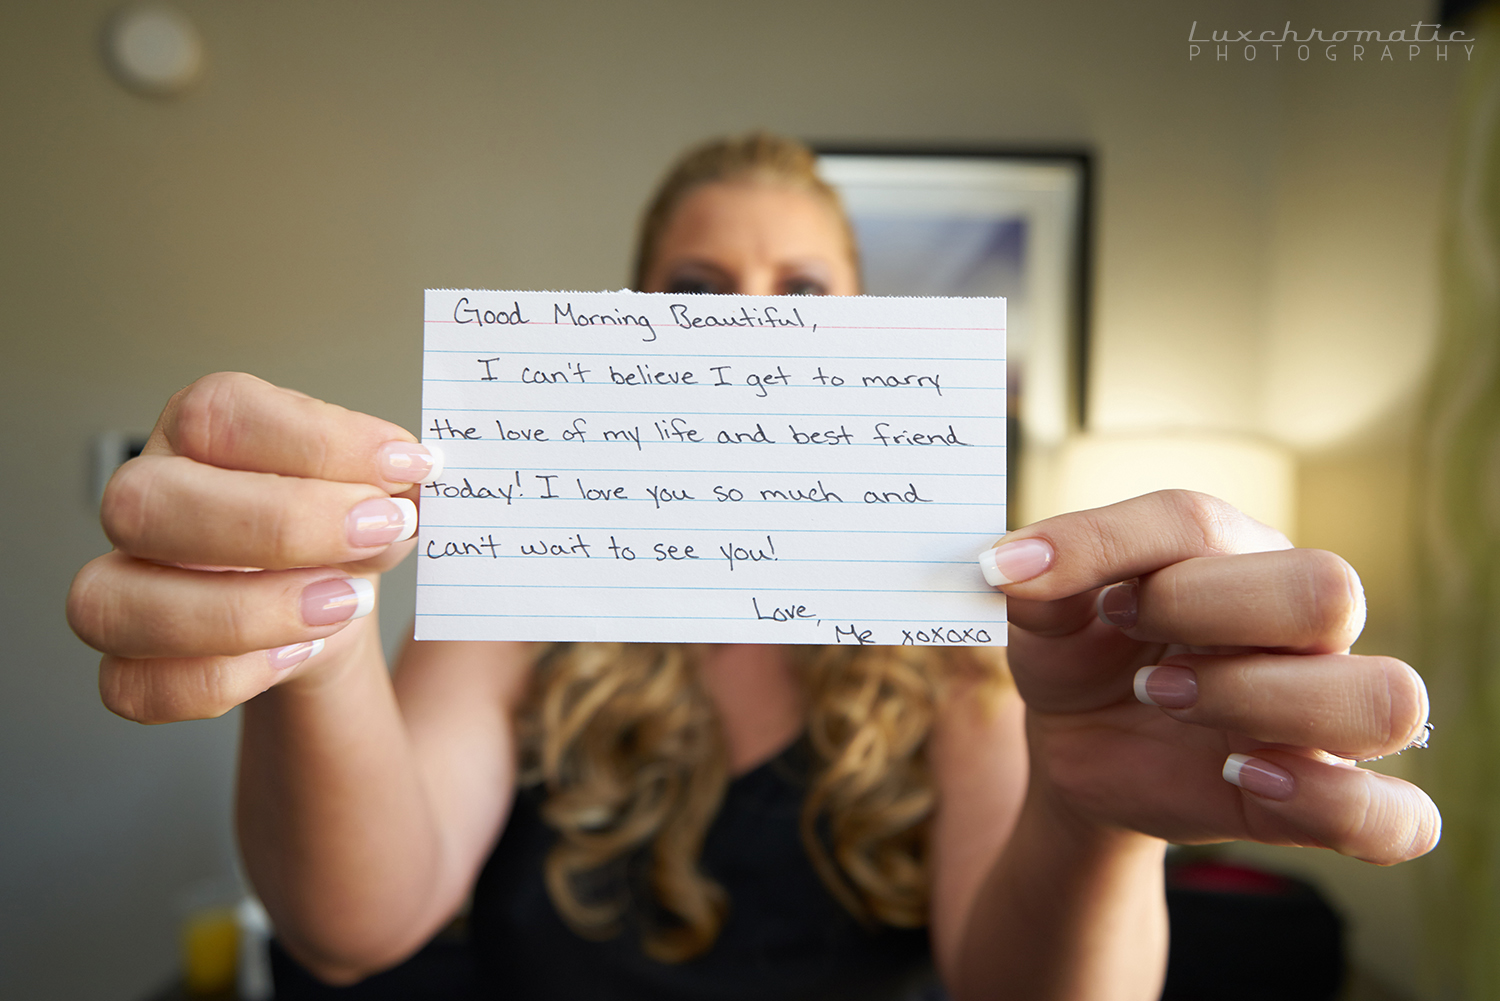 Luxchromatic
PHOTOGRAPHY
Good Morning Beautiful,
I can't believe I get to marry
the love of my life and best friend
today! I love you so much and
can't wait to see you!
Love,
Me xoxoxo